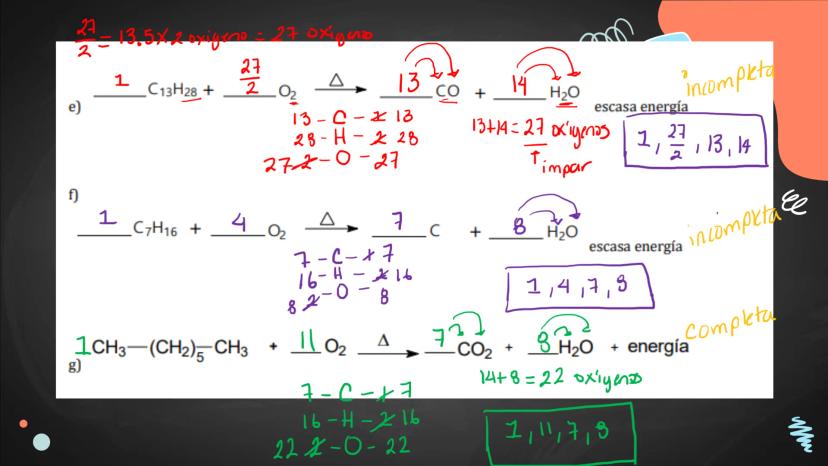 27/2 = 13.5 x 2 oxígeno = 27 oxígeno
incompleta
e) 1 C₁₃H₂₈ + 27/2 O₂ Δ → 13 CO + 14 H₂O escasa energía
13 - C - 1 13
28 - H - 2 28
27 2 - O - 27
13+14 = 27 oxígenos
impar
1, 27/2, 13, 14
f) 1 C₇H₁₆ + 4 O₂ Δ → 7 C + 8 H₂O escasa energía
incompleta
7 - C - 1 7
16 - H - 2 16
8 2 - O - 8
1, 4, 7, 8
g) 1 CH₃—(CH₂)₅—CH₃ + 11 O₂ Δ → 7 CO₂ + 8 H₂O + energía
completa
14+8 = 22 oxígenos
7 - C - 1 7
16 - H - 2 16
22 2 - O - 22
1, 11, 7, 8